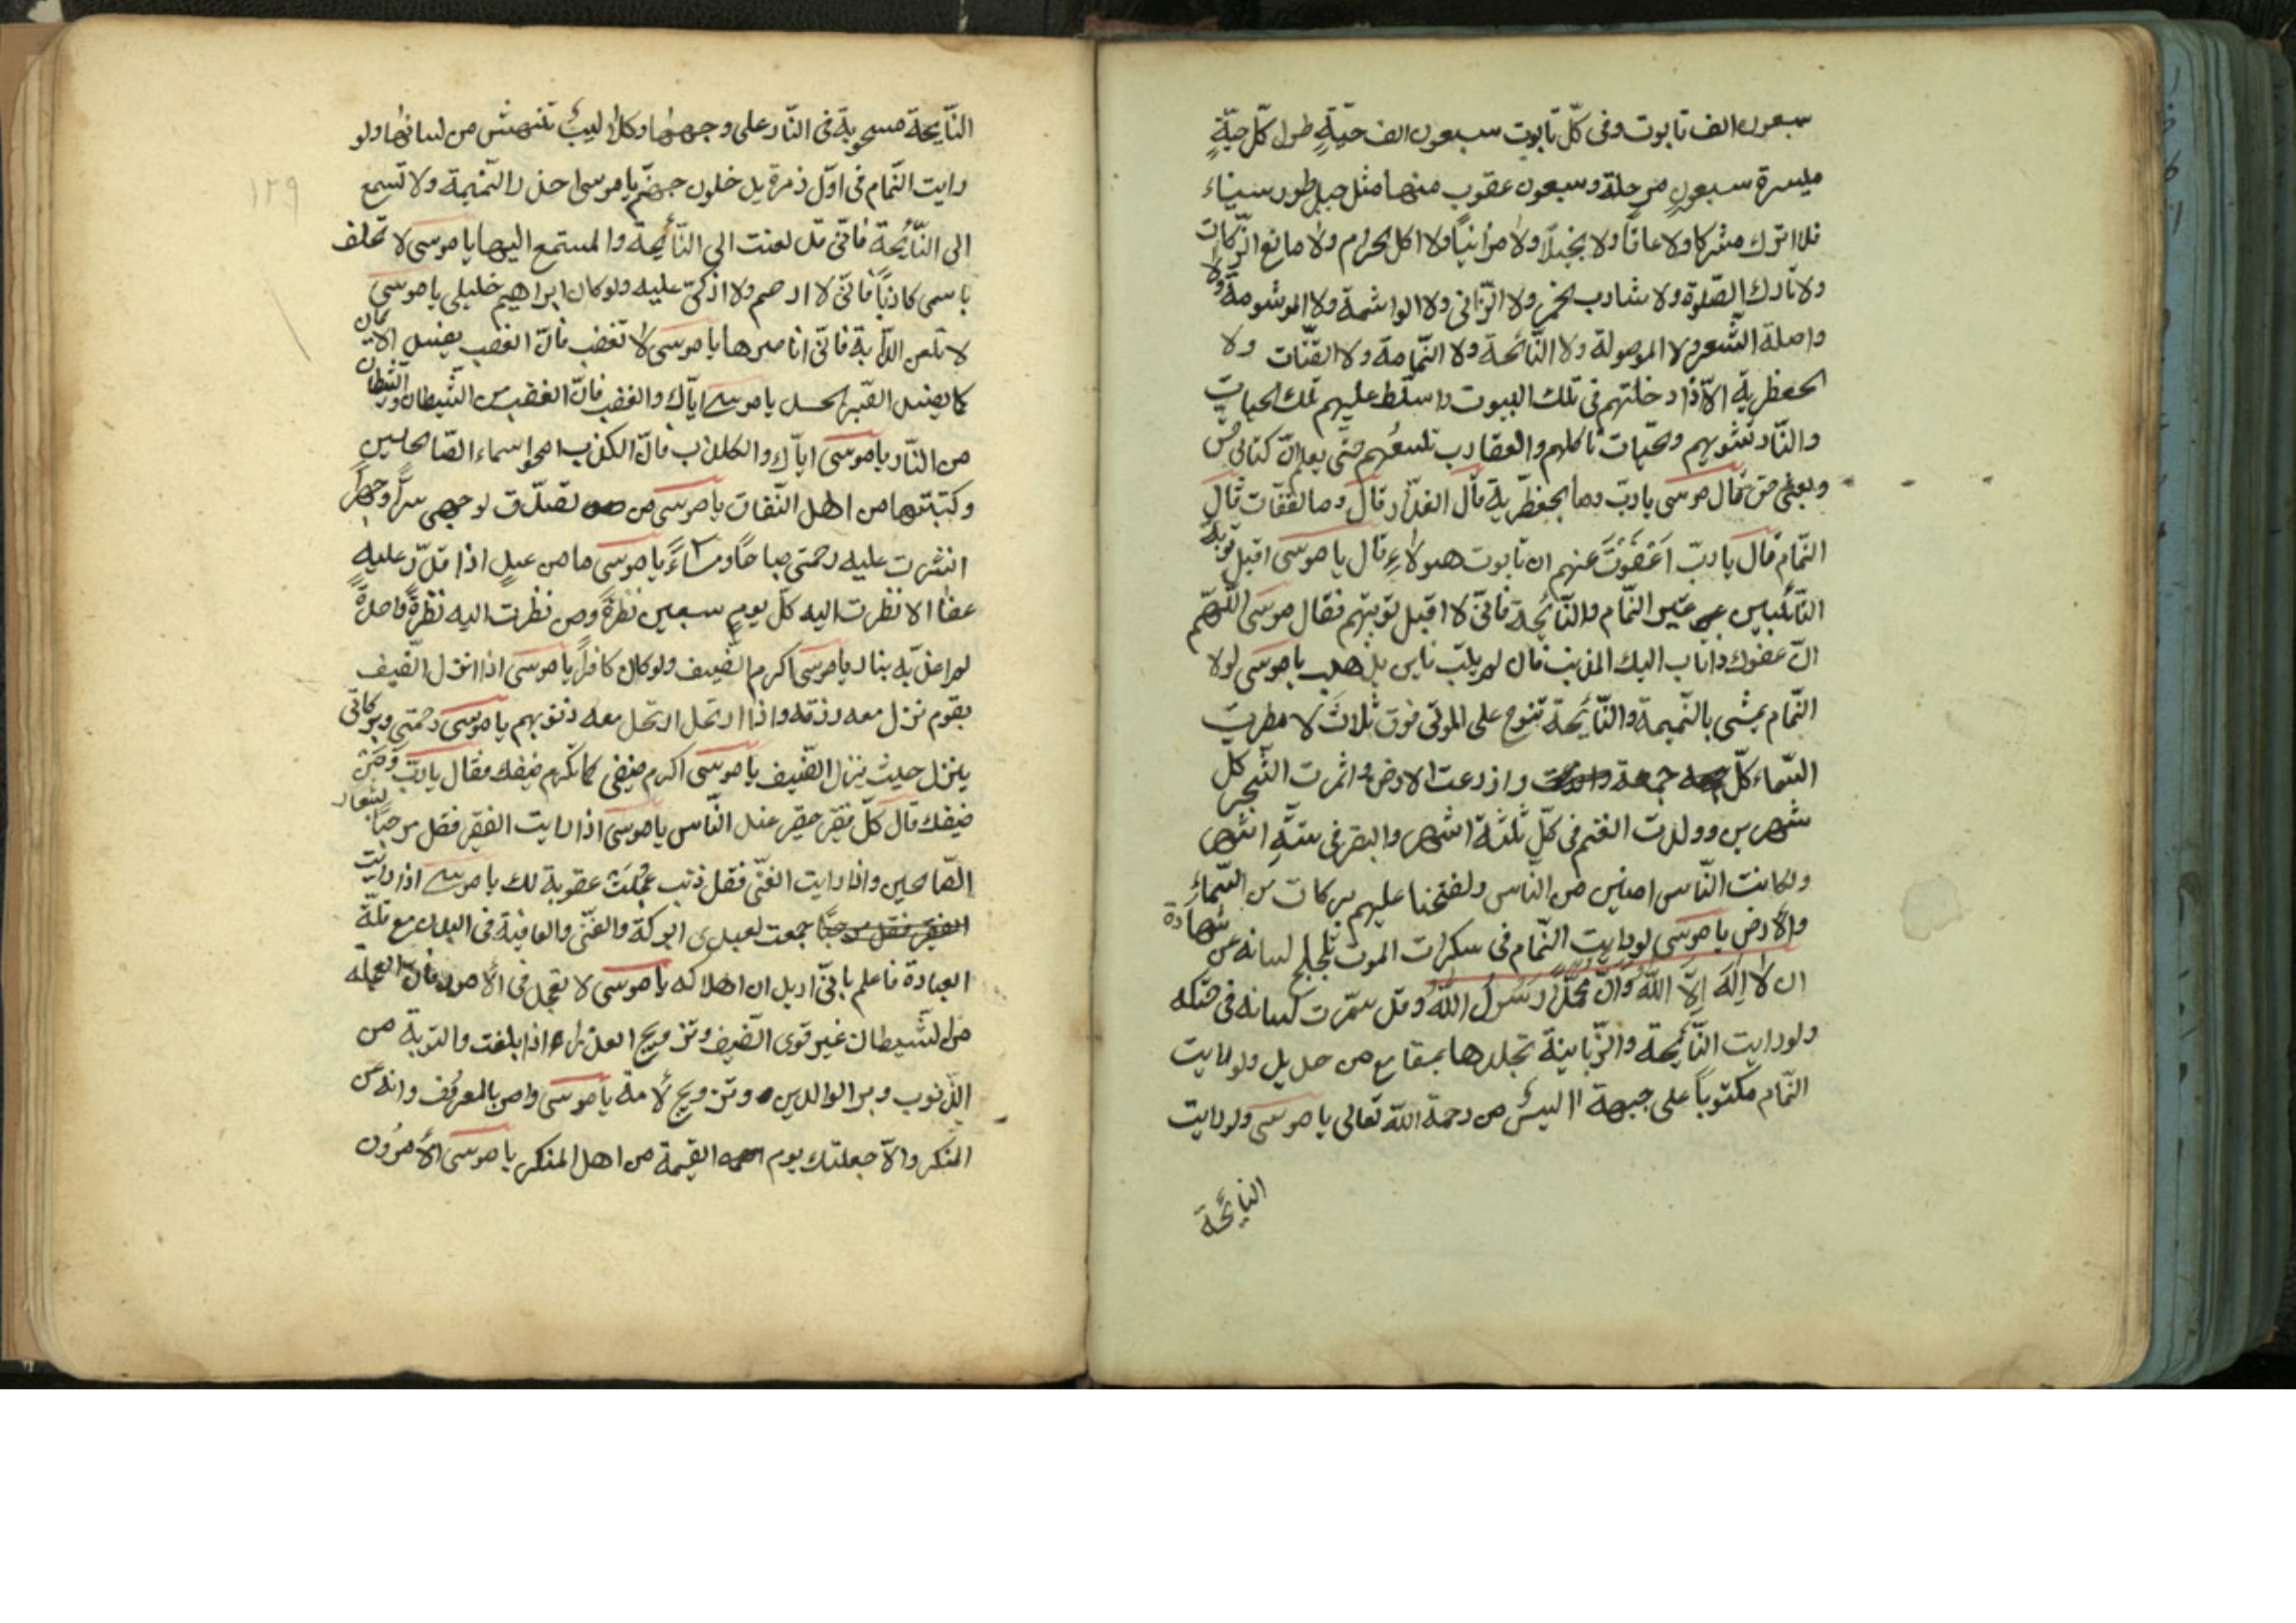 سبعون الف تابوت وفى كلّ تابوت سبعون الف حيّةٍ طول كلّ حيّةٍ
ميسرة سبعون مرحلة وسبعون عقرب منها مثل جبل طور سيناء
فلا اترك مشركا ولا عاقًّا ولا بخيلًا ولا مرائيًا ولا اكل الحرام ولا مانع الزّكات
ولا تارك الصّلوة ولا شارب الخمر ولا الزّانى ولا الواشمة ولا الموشومة ولا
واصلة الشّعر ولا الموصولة ولا النّائحة ولا النّمامة ولا القتّات ولا
الجعظرية الّا اذا دخلتهم فى تلك البيوت واسلّط عليهم تلك الحيات
والنّار تشويهم والحيّات تاكلهم والعقارب تلسعهم حتّى يعلم انّ كتابى حقّ
وبعثى حقّ قال موسى يا ربّ وما الجعظريّة قال الغدّار قال وما القتّات قال
النّمام قال يا ربّ اعفوت عنهم ان تابوت هولاءِ قال يا موسى اقبل توبة
التّائبين غير النّمام والنّائحة فانّى لا اقبل توبتهم فقال موسى اللّهمّ
انّ عفوك واناب اليك المذنب قال لم يا موسى لولا
النّمام يمشى بالنّميمة والنّائحة تنوح على الموتى فوق ثلاث لامطرت
السّماء كلّ جمعة وازرعت الارض واثمرت الشّجر كل
شهرين وولدت الغنم فى كلّ ثلثة اشهر والبقر فى ستّةِ اشهر
ولكانت النّاس امنين من النّاس ولفتحنا عليهم بركات من السّماء
والارض يا موسى لو رايت النّمام فى سكرات الموت تلجلج لسانه عن شهادة
ان لا اله الّا اللّه وانّ محمّدًا رسول اللّه وقد سمّرت لسانه فى حنكه
ولو رايت النّائحة والزّبانية تجلدها بمقامع من حديد ولو رايت
النّمام مكتوبًا على جبهة اليئس من رحمة اللّه تعالى يا موسى ولو رايت
النّائحة
النّائحة مسحوبة فى النّار على وجهها وكلاليب تنهش من لسانها ولو
رايت النّمام فى اوّل زمرة يدخلون جهنّم يا موسى احذر النّميمة ولا تسمع
الى النّائحة فانّى قد لعنت الى النّائحة والمستمع اليها يا موسى لا تحلف
باسمى كاذبًا فانّى لا ارحم ولا ازكّى عليه ولو كان ابراهيم خليلى يا موسى
لا تلعن الدّابة فانّى انا يا موسى لا تغضب فانّ الغضب يفسد الايمان
كما يفسد الصّبر العسل يا موسى ايّاك والغضب فانّ الغضب من الشّيطان والشّيطان
من النّار يا موسى ايّاك والكذب فانّ الكذب امحوا اسماء الصّالحين
وكتبتها من اهل النّفاق يا موسى من تصدّق لوجهى سرًّا وجهرًا
انتثرت عليه رحمتى صباحًا ومساءً يا موسى ما من عبدٍ اذا عليه
عضًا الا نظرت اليه كلّ يومٍ سبعين نظرةً ومن نظرت اليه نظرةً واحدةً
لم اعذّبه بنار يا موسى اكرم الضّيف ولو كان كافرًا يا موسى اذا انزل الضّيف
بقوم نزل معه رزقه واذا ارتحل ارتحل معه ذنوبهم يا موسى رحمتى وبركاتى
ينزل حيث ينزل الضّيف يا موسى اكرم ضيفى كما تكرم ضيفك فقال يا ربّ ومن
ضيفك قال كلّ فقير حقير عند النّاس يا موسى اذا رايت الفقير فقل مرحبًا بشعار
الصّالحين واذا رايت الغنّى فقل ذنب عجّلت عقوبة لك يا موسى اذا رايت
جمعت لعبدى البركة والغنّى والعافية فى البدن مع قلّة
العبادة فاعلم بانّى اريد ان اهلاكه يا موسى لا تعجل فى الامور فانّ العجلة
من الشّيطان غير قرى الضّيف وتزويج العذراء اذا بلغت والتوبة من
الذّنوب وبر الوالدين وتزويج لامة يا موسى وامر بالمعروف وانه عن
المنكر والّا جعلتك يوم القيمة من اهل المنكر يا موسى الامرون
١٢٩